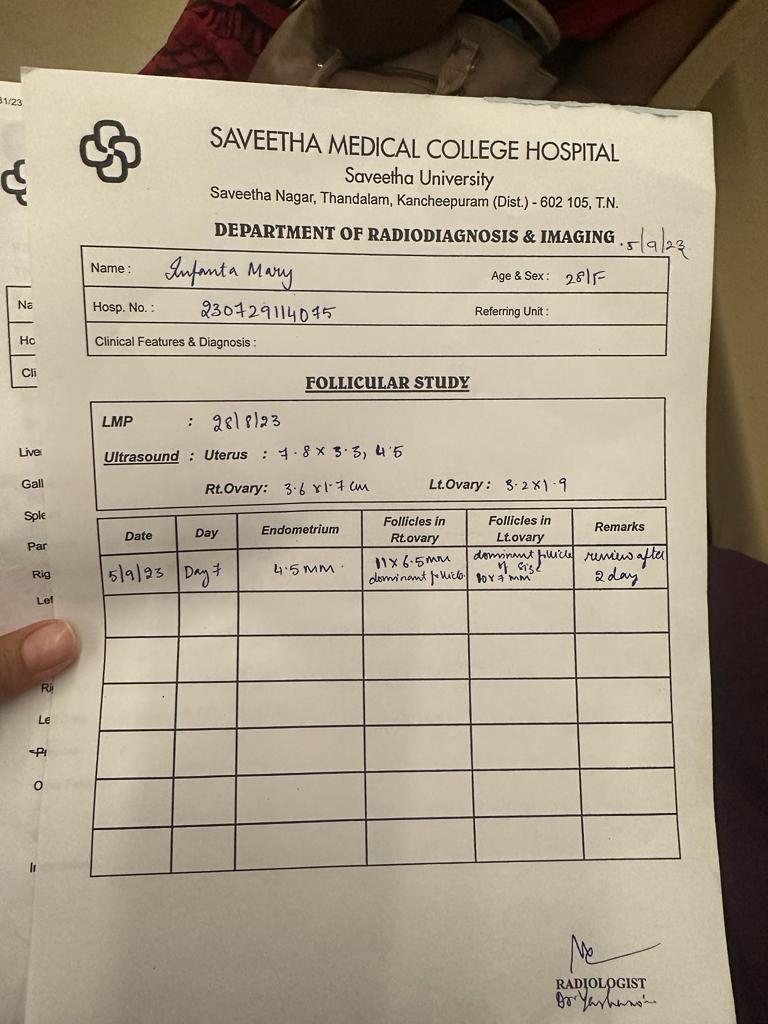 31/23
SAVEETHA MEDICAL COLLEGE HOSPITAL
Saveetha University
Saveetha Nagar, Thandalam, Kancheepuram (Dist.) - 602 105, T.N.
DEPARTMENT OF RADIODIAGNOSIS & IMAGING . 5/9/23
Name : Infanta Mary Age & Sex : 28/F
Hosp. No. : 230729114075 Referring Unit :
Clinical Features & Diagnosis :
FOLLICULAR STUDY
LMP : 28/8/23
Ultrasound : Uterus : 7.8 x 3.3, 4.5
Rt.Ovary: 3.6 x 1.7 cm Lt.Ovary : 3.2 x 1.9
Date Day Endometrium Follicles in Rt.ovary Follicles in Lt.ovary Remarks
5/9/23 Day 7 4.5 mm. 11 x 6.5 mm dominant follicle dominant follicle of size 10 x 7 mm review after 2 day
Na
Ho
Cli
Live
Gall
Sple
Par
Rig
Lef
Ri
Le
Pr
O
RADIOLOGIST